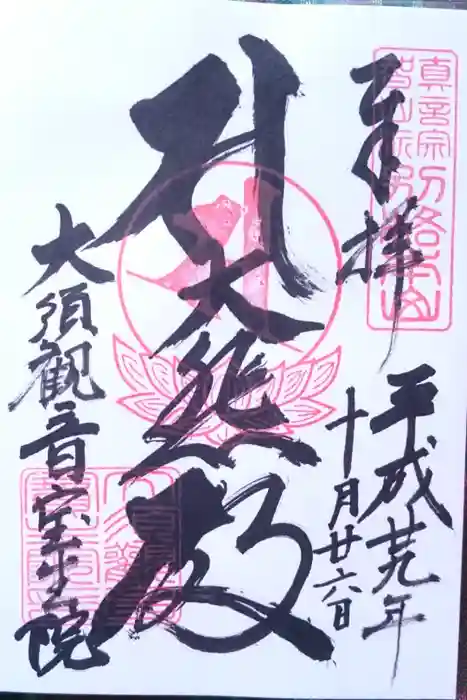 真言宗
智山派別格本山
奉拝
平成廿九年
十月廿六日
大悲殿
大須観音宝生院